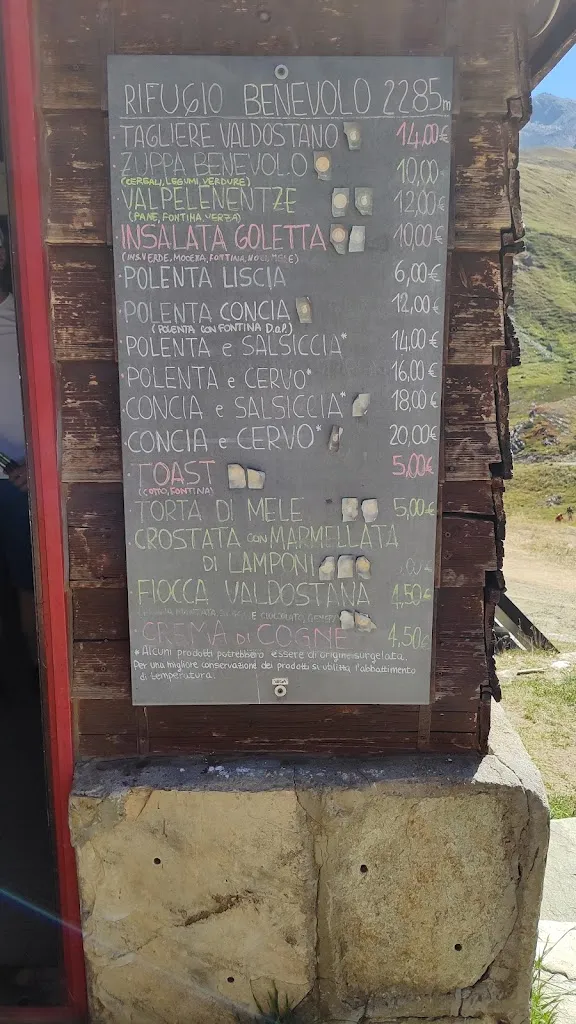 RIFUGIO BENEVOLO 2285m
TAGLIERE VALDOSTANO 14,00€
ZUPPA BENEVOLO 10,00
(CEREALI, LEGUMI, VERDURE)
VALPELENENTZE 12,00€
(PANE, FONTINA, VERZA)
INSALATA GOLETTA 10,00€
(INS. VERDE, MOCETTA, FONTINA, NOCI, MELE)
POLENTA LISCIA 6,00€
POLENTA CONCIA 12,00€
(POLENTA CON FONTINA D.O.P.)
POLENTA e SALSICCIA* 14,00€
POLENTA e CERVO* 16,00€
CONCIA e SALSICCIA* 18,00€
CONCIA e CERVO* 20,00€
TOAST 5,00€
(COTTO, FONTINA)
TORTA DI MELE 5,00€
CROSTATA con MARMELLATA
DI LAMPONI ,00€
FIOCCA VALDOSTANA 4,50€
E CIOCCOLATO
CREMA di COGNE 4,50€
* Alcuni prodotti potrebbero essere di origine surgelata.
Per una migliore conservazione dei prodotti si utilizza l'abbattimento
di temperatura.